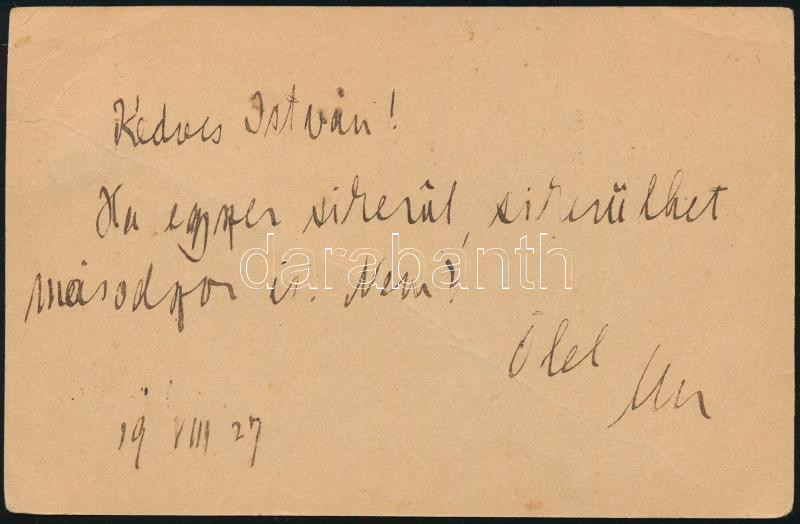 Kedves István!
Ha egyszer sikerül, sikerülhet
másodszor is. Nem?
darabanth
Ölel
19 VIII 27